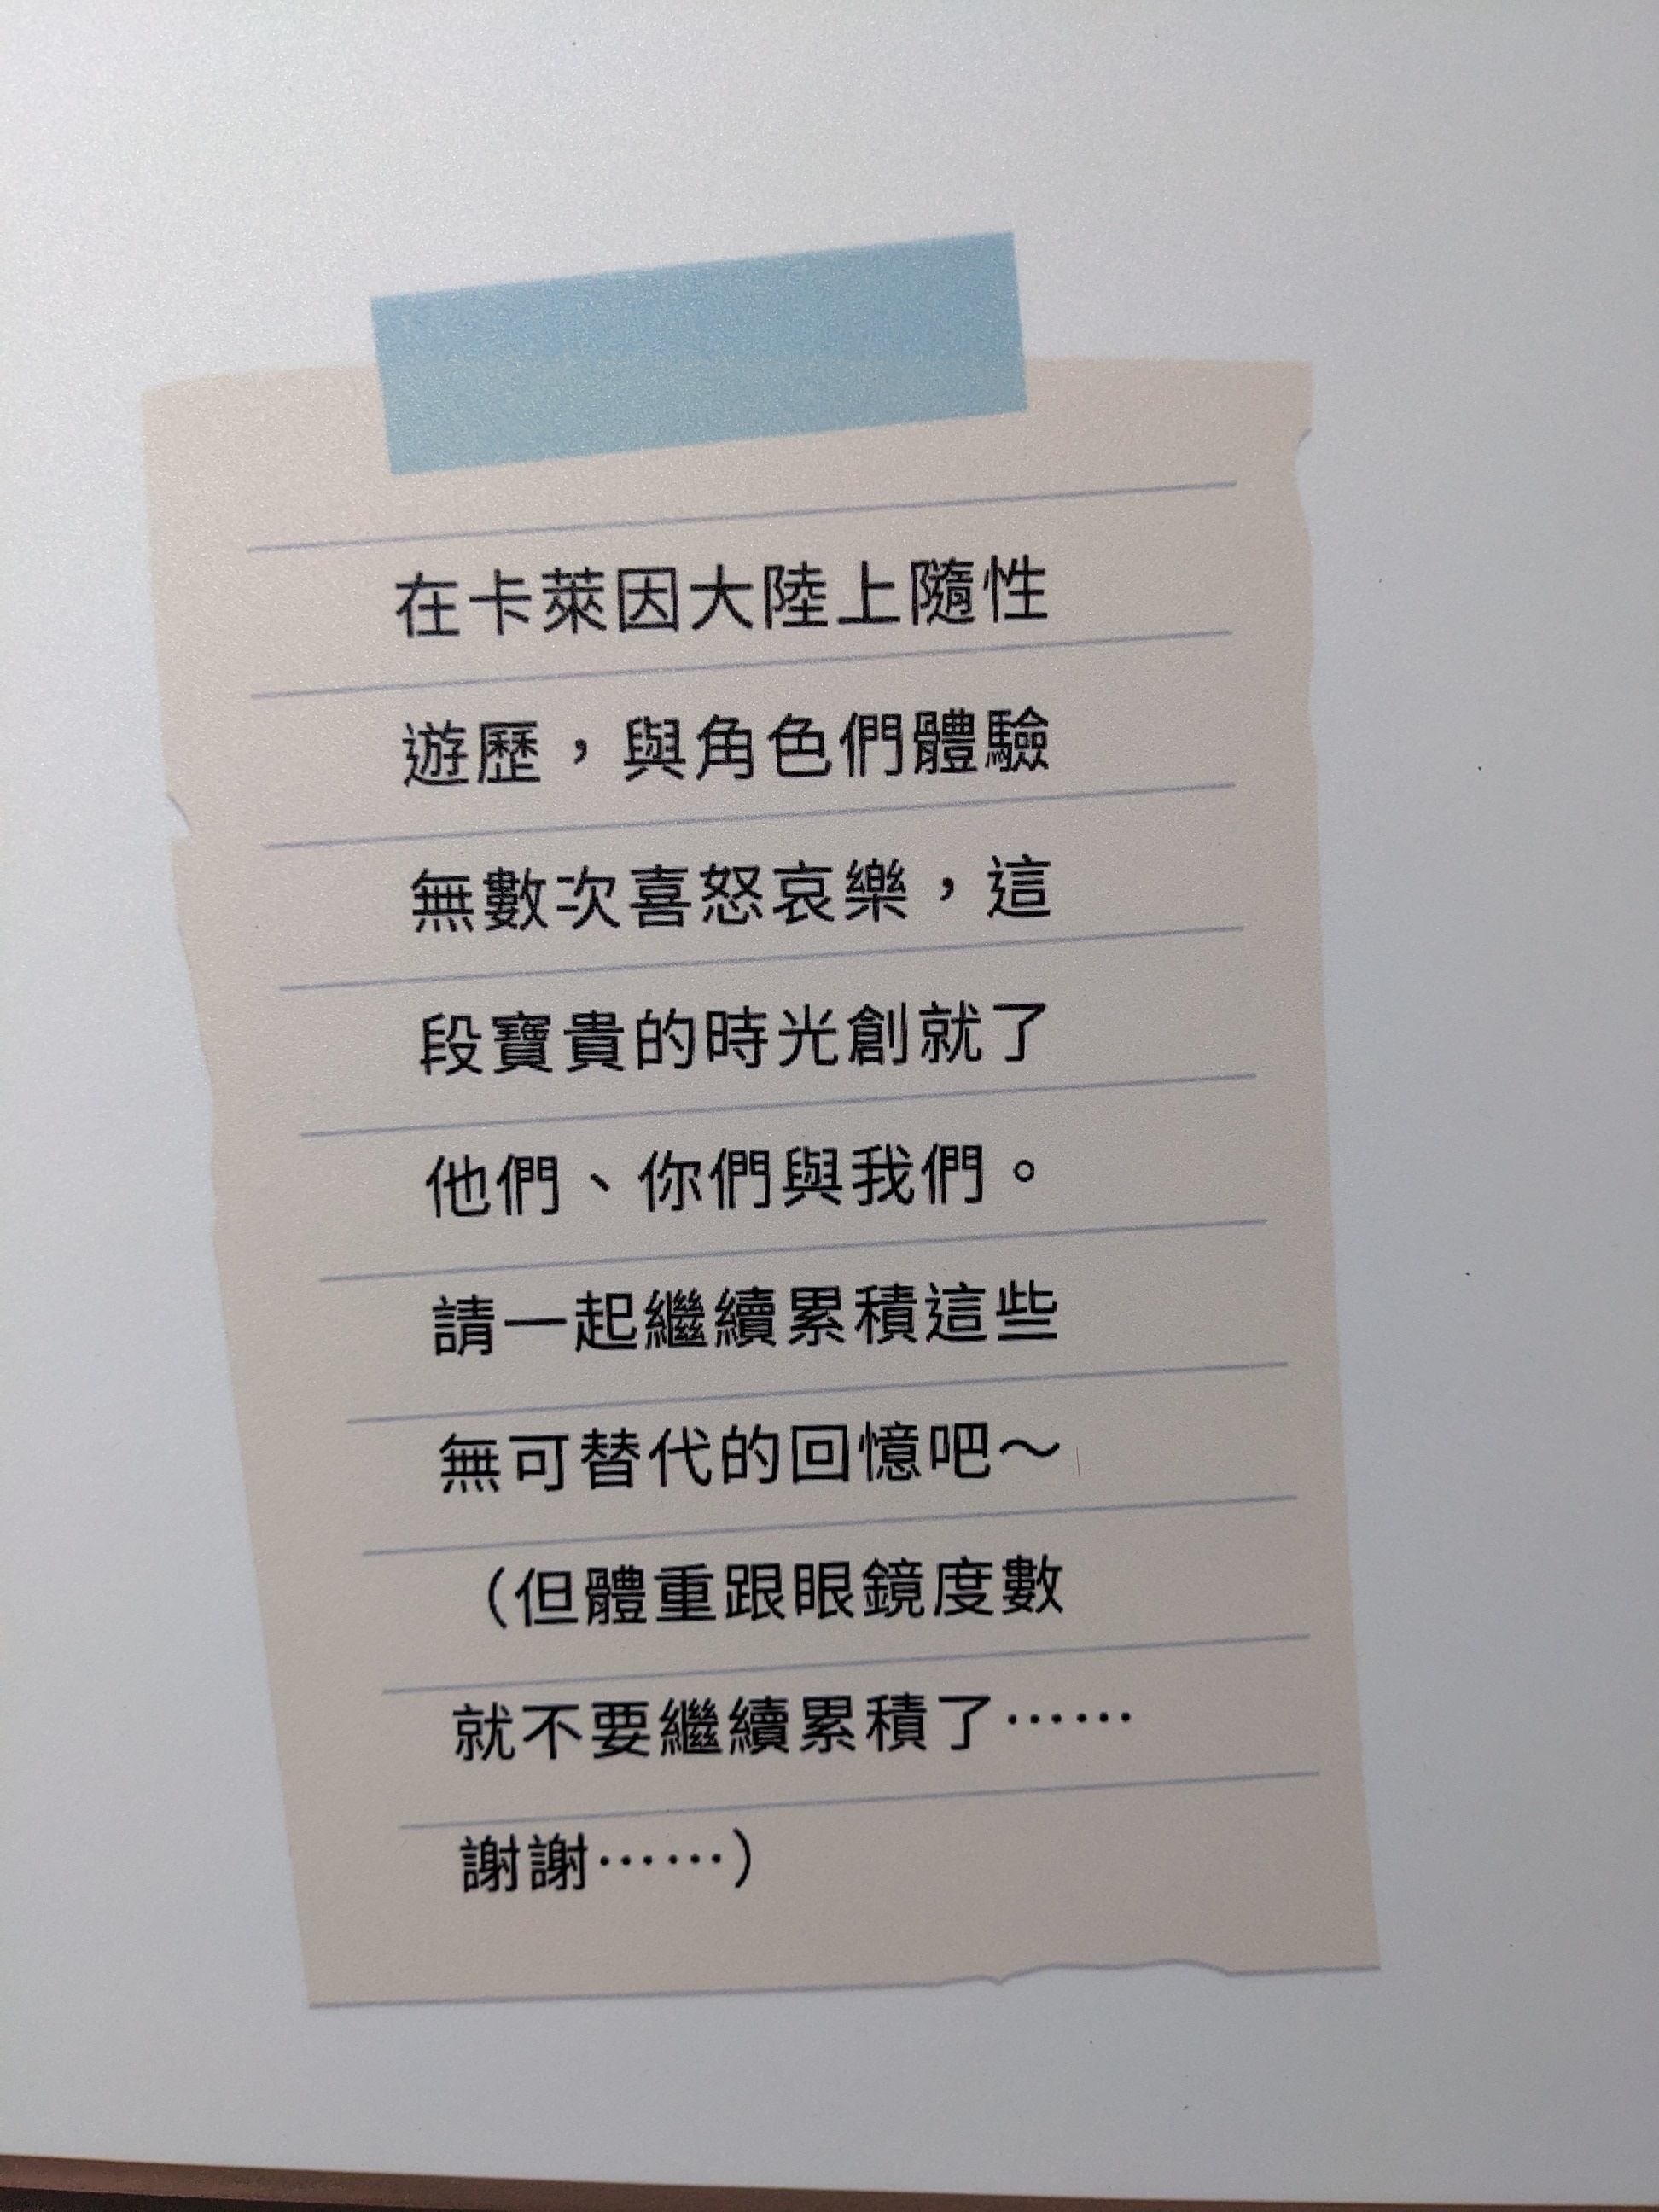 在卡萊因大陸上隨性
遊歷，與角色們體驗
無數次喜怒哀樂，這
段寶貴的時光創就了
他們、你們與我們。
請一起繼續累積這些
無可替代的回憶吧～
（但體重跟眼鏡度數
就不要繼續累積了……
謝謝……）